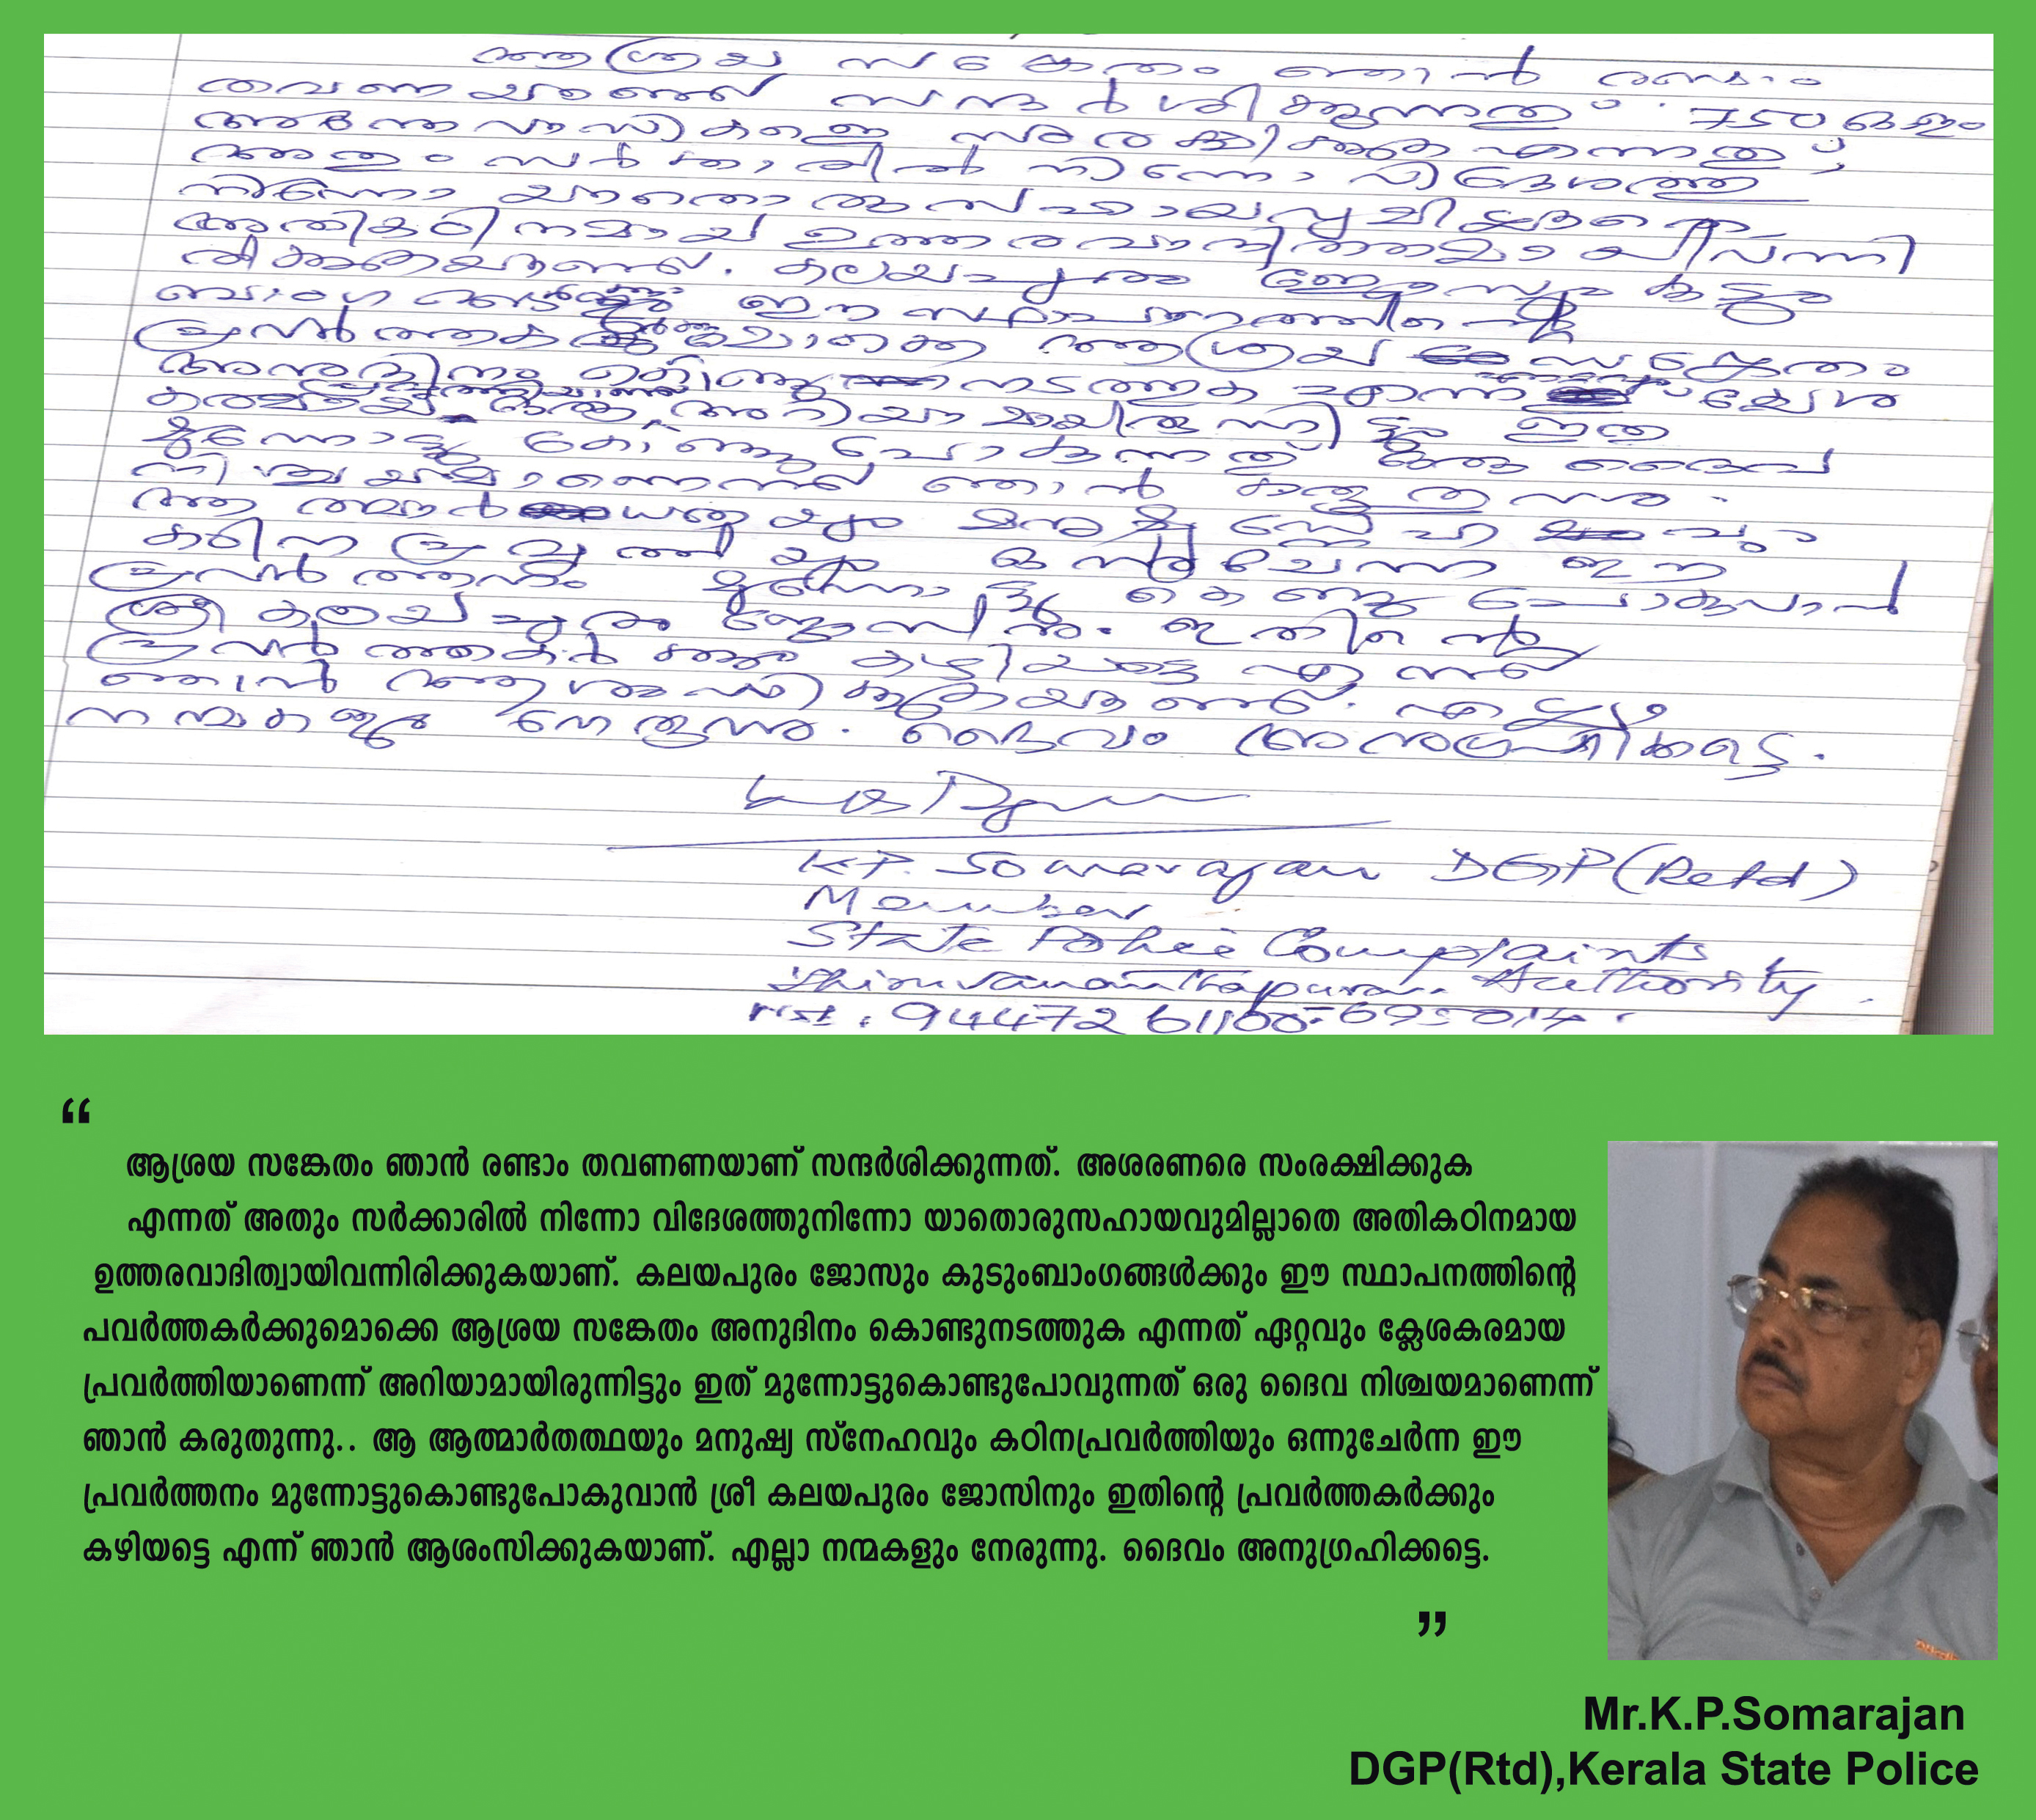 ആശ്രയ സങ്കേതം ഞാൻ രണ്ടാം
തവണയാണ് സന്ദർശിക്കുന്നത്. 750 ഓളം
അന്തേവാസികളെ സംരക്ഷിക്കുക എന്നത്,
അതും സർക്കാരിൽ നിന്നോ വിദേശത്തു
നിന്നോ യാതൊരു സഹായവുമില്ലാതെ
അതികഠിനമായ ഉത്തരവാദിത്തമായിവന്നി
രിക്കുകയാണ്. കലയപുരം ജോസും കുടും
ബാംഗങ്ങൾക്കും ഈ സ്ഥാപനത്തിന്റെ
പ്രവർത്തകർക്കുമൊക്കെ ആശ്രയ സങ്കേതം
അനുദിനം കൊണ്ടുനടത്തുക എന്നത് ക്ലേശ
കരമായ പ്രവൃത്തിയാണെന്ന് അറിയാമായിരുന്നിട്ടും ഇത്
മുന്നോട്ടു കൊണ്ടുപോകുന്നത് ഒരു ദൈവ
നിശ്ചയമാണെന്ന് ഞാൻ കരുതുന്നു.
ആ ആത്മാർത്ഥതയും മനുഷ്യ സ്നേഹവും
കഠിന പ്രവൃത്തിയും ഒന്നുചേർന്ന ഈ
പ്രവർത്തനം മുന്നോട്ടു കൊണ്ടു പോകുവാൻ
ശ്രീ കലയപുരം ജോസിനും ഇതിന്റെ
പ്രവർത്തകർക്കും കഴിയട്ടെ എന്ന്
ഞാൻ ആശംസിക്കുകയാണ്. എല്ലാ
നന്മകളും നേരുന്നു. ദൈവം അനുഗ്രഹിക്കട്ടെ.
K.P. Somarajan DGP (Retd)
Member
State Police Complaints
Authority.
Thiruvananthapuram.
“
ആശ്രയ സങ്കേതം ഞാൻ രണ്ടാം തവണണയാണ് സന്ദർശിക്കുന്നത്. അശരണരെ സംരക്ഷിക്കുക
എന്നത് അതും സർക്കാരിൽ നിന്നോ വിദേശത്തുനിന്നോ യാതൊരുസഹായവുമില്ലാതെ അതികഠിനമായ
ഉത്തരവാദിത്വായിവന്നിരിക്കുകയാണ്. കലയപുരം ജോസും കുടുംബാംഗങ്ങൾക്കും ഈ സ്ഥാപനത്തിന്റെ
പവർത്തകർക്കുമൊക്കെ ആശ്രയ സങ്കേതം അനുദിനം കൊണ്ടുനടത്തുക എന്നത് ഏറ്റവും ക്ലേശകരമായ
പ്രവർത്തിയാണെന്ന് അറിയാമായിരുന്നിട്ടും ഇത് മുന്നോട്ടുകൊണ്ടുപോവുന്നത് ഒരു ദൈവ നിശ്ചയമാണെന്ന്
ഞാൻ കരുതുന്നു.. ആ ആത്മാർതത്ഥയും മനുഷ്യ സ്നേഹവും കഠിനപ്രവർത്തിയും ഒന്നുചേർന്ന ഈ
പ്രവർത്തനം മുന്നോട്ടുകൊണ്ടുപോകുവാൻ ശ്രീ കലയപുരം ജോസിനും ഇതിന്റെ പ്രവർത്തകർക്കും
കഴിയട്ടെ എന്ന് ഞാൻ ആശംസിക്കുകയാണ്. എല്ലാ നന്മകളും നേരുന്നു. ദൈവം അനുഗ്രഹിക്കട്ടെ.
”
Mr.K.P.Somarajan
DGP(Rtd),Kerala State Police